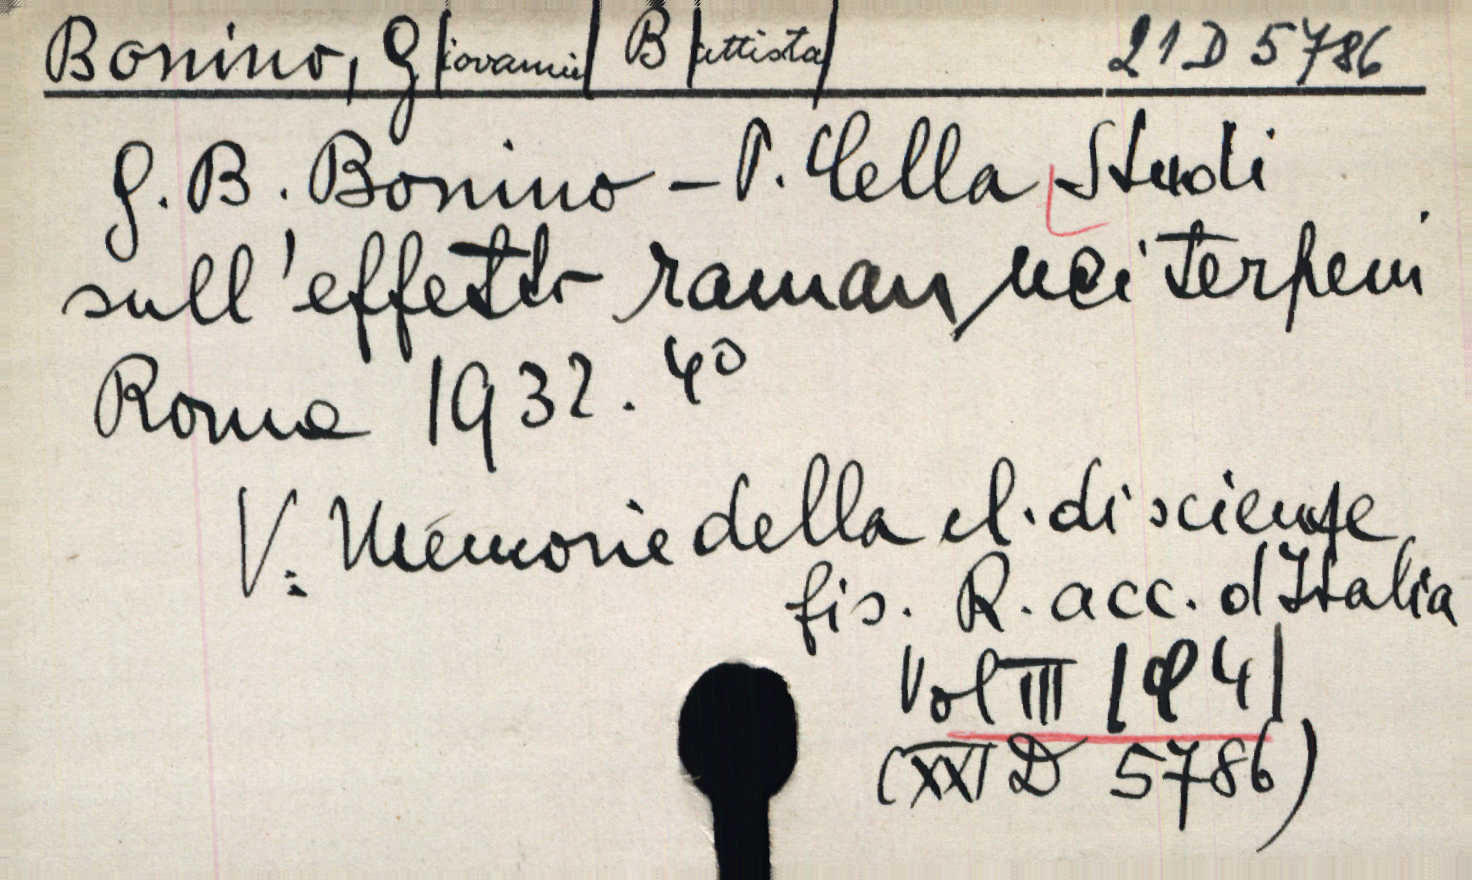 Bonino, G|iovanni| B|attista| 21 D 5786
G. B. Bonino - P. Cella Studi
sull'effetto raman nei terpeni
Roma 1932. 4º
V: Memorie della cl. di scienze
fis. R. acc. d'Italia
Vol III
(XXI D 5786)